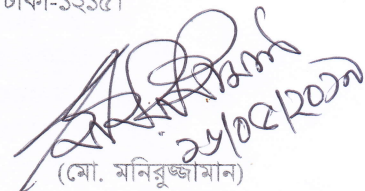 ঢাকা-১২১৫।
২৮/০৫/২০১৭
(মো. মনিরুজ্জামান)